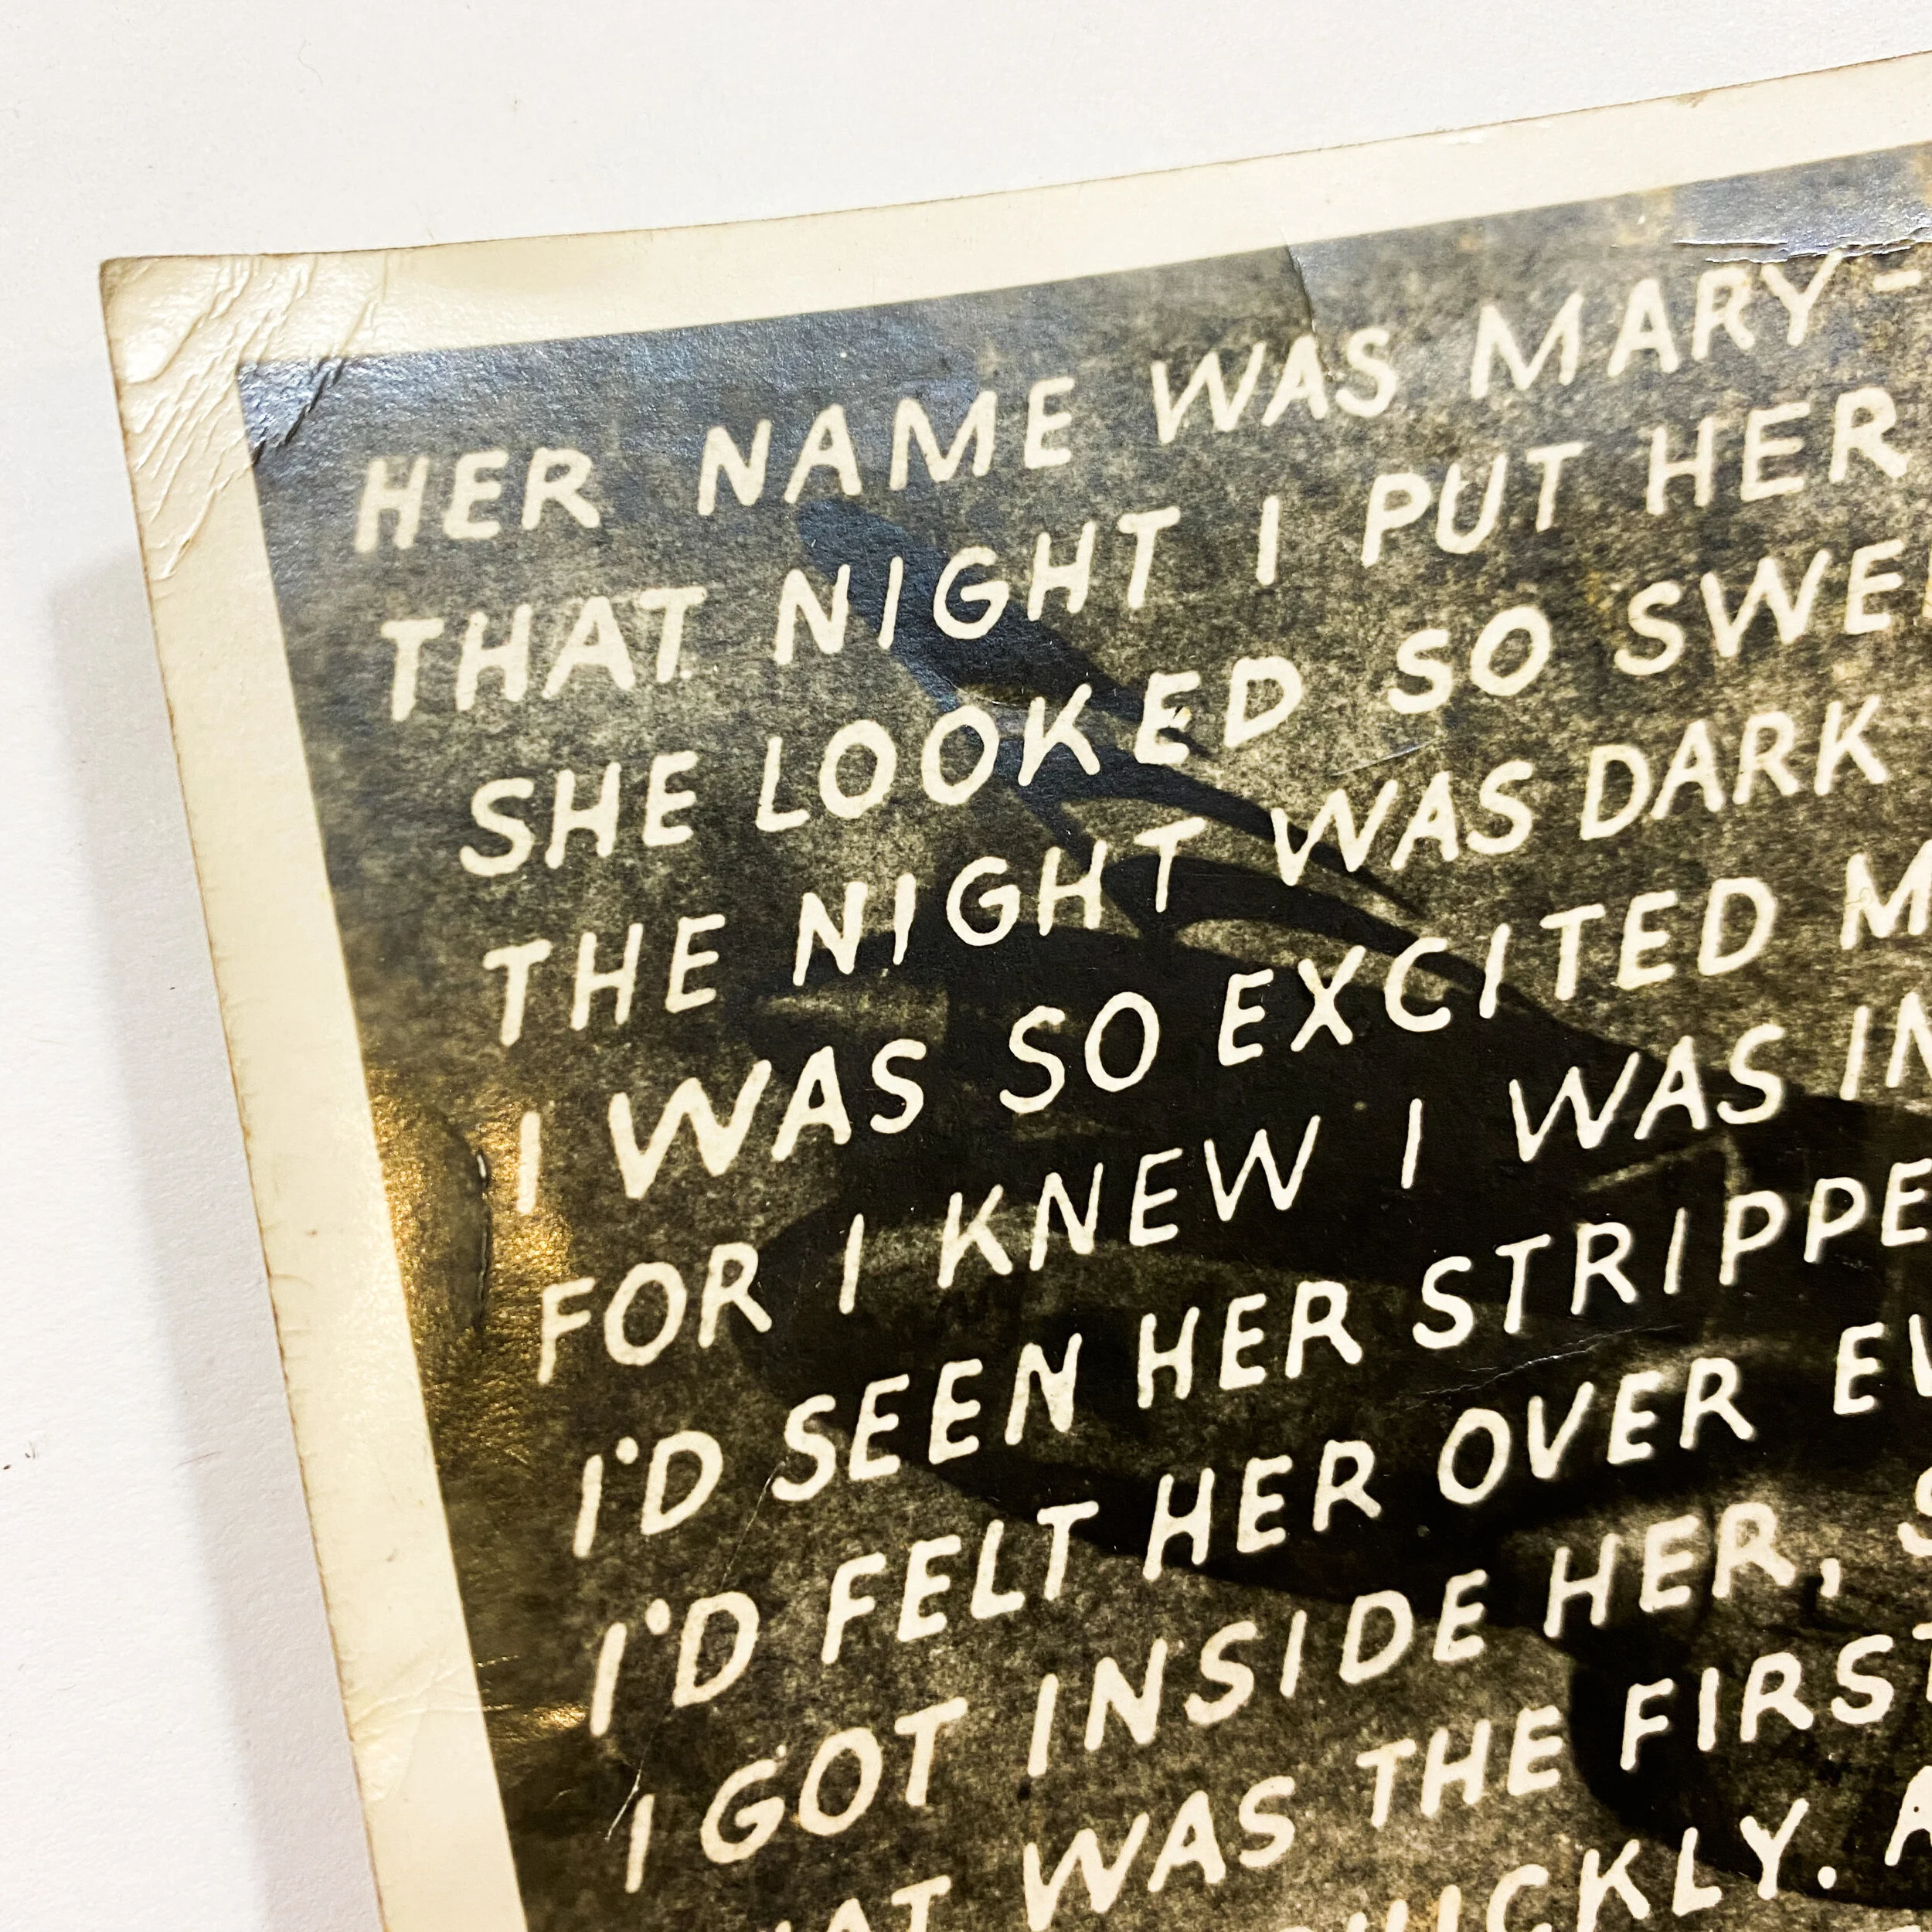 HER NAME WAS MARY -
THAT NIGHT I PUT HER
SHE LOOKED SO
THE NIGHT WAS DARK
I WAS SO EXCITED
FOR I KNEW I WAS
I'D SEEN HER
I'D FELT HER OVER
I GOT INSIDE HER,
WAS THE